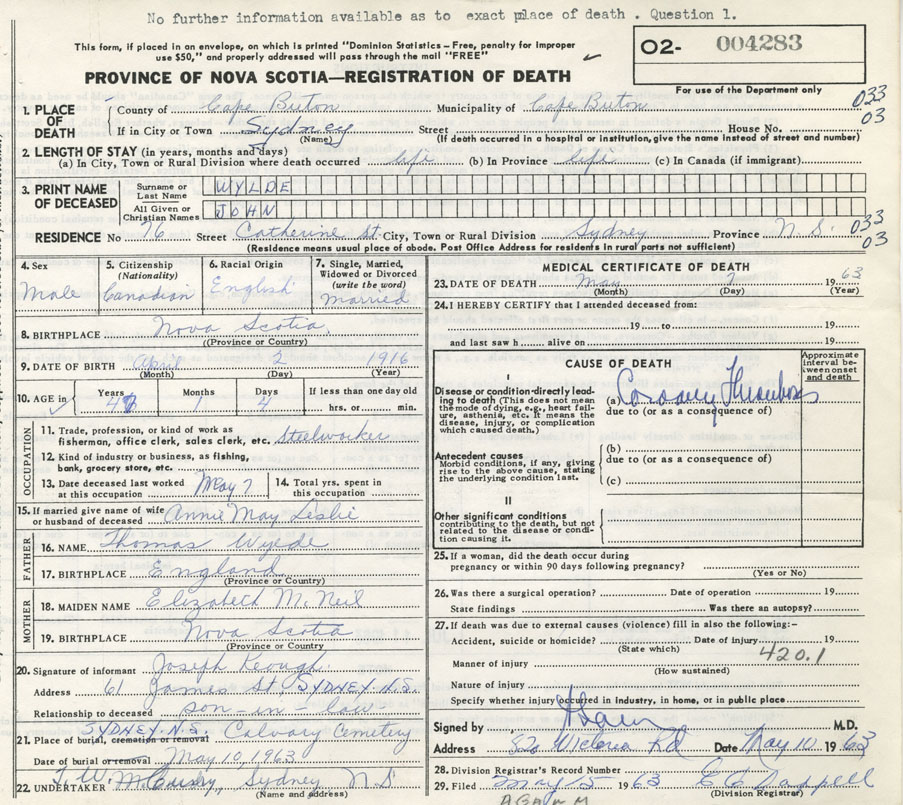 No further information available as to exact place of death . Question 1.
This form, if placed in an envelope, on which is printed "Dominion Statistics – Free, penalty for improper
use $50," and properly addressed will pass through the mail "FREE"
O2- 004283
PROVINCE OF NOVA SCOTIA—REGISTRATION OF DEATH
For use of the Department only
1. PLACE OF DEATH
County of Cape Breton Municipality of Cape Breton 033
03
If in City or Town Sydney Street House No.
(Name) (If death occurred in a hospital or institution, give the name instead of street and number)
2. LENGTH OF STAY (in years, months and days)
(a) In City, Town or Rural Division where death occurred life (b) In Province life (c) In Canada (if immigrant)
3. PRINT NAME OF DECEASED
Surname or Last Name WYLDE
All Given or Christian Names JOHN
RESIDENCE No 76 Street Catherine St. City, Town or Rural Division Sydney Province N.S. 033
03
(Residence means usual place of abode. Post Office Address for residents in rural parts not sufficient)
4. Sex Male
5. Citizenship (Nationality) Canadian
6. Racial Origin English
7. Single, Married, Widowed or Divorced (write the word) married
8. BIRTHPLACE Nova Scotia
(Province or Country)
9. DATE OF BIRTH April 2 1916
(Month) (Day) (Year)
10. AGE in Years Months 1 Days If less than one day old
hrs. or min.
OCCUPATION
11. Trade, profession, or kind of work as
fisherman, office clerk, sales clerk, etc. Steelworker
12. Kind of industry or business, as fishing,
bank, grocery store, etc.
13. Date deceased last worked at this occupation May 7
14. Total yrs. spent in this occupation
15. If married give name of wife
or husband of deceased Annie May Leslie
FATHER
16. NAME Thomas Wylde
17. BIRTHPLACE England
(Province or Country)
MOTHER
18. MAIDEN NAME Elizabeth McNeil
19. BIRTHPLACE Nova Scotia
(Province or Country)
20. Signature of informant Joseph Keough
Address 61 James St SYDNEY. N.S.
Relationship to deceased son-in-law
SYDNEY. N.S.
21. Place of burial, cremation or removal Calvary Cemetery
Date of burial or removal May 10, 1963
22. UNDERTAKER Sydney N S
(Name and address)
MEDICAL CERTIFICATE OF DEATH
23. DATE OF DEATH May 7 1963
(Month) (Day) (Year)
24. I HEREBY CERTIFY that I attended deceased from:
19 to 19
and last saw h alive on 19
CAUSE OF DEATH
Approximate interval between onset and death
I
Disease or condition directly leading to death (This does not mean the mode of dying, e.g., heart failure, asthenia, etc. It means the disease, injury, or complication which caused death.)
(a) Coronary Thrombosis
due to (or as a consequence of)
Antecedent causes
Morbid conditions, if any, giving rise to the above cause, stating the underlying condition last.
(b)
due to (or as a consequence of)
(c)
II
Other significant conditions
contributing to the death, but not related to the disease or condition causing it.
25. If a woman, did the death occur during
pregnancy or within 90 days following pregnancy?
(Yes or No)
26. Was there a surgical operation? Date of operation 19
State findings Was there an autopsy?
27. If death was due to external causes (violence) fill in also the following:–
Accident, suicide or homicide? Date of injury 19
(State which)
420.1
Manner of injury
(How sustained)
Nature of injury
Specify whether injury occurred in Industry, in home, or in public place
Signed by M.D.
Address Victoria Rd Date May 10 1963
28. Division Registrar's Record Number
29. Filed May 15 1963
(Division Registrar)